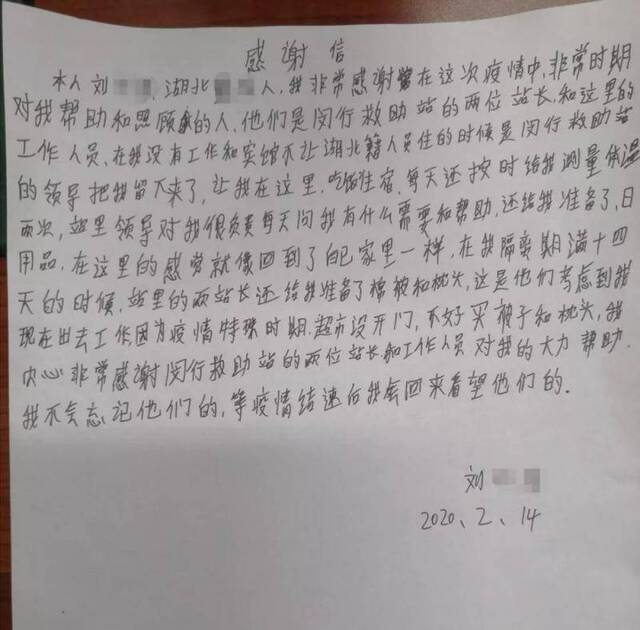 感谢信
本人刘 湖北 人,我非常感谢在这次疫情中,非常时期
对我帮助和照顾的人,他们是闵行救助站的两位站长,和这里的
工作人员,在我没有工作和宾馆不让湖北籍人员住的时候是闵行救助站
的领导把我留下来了,让我在这里,吃饭住宿,每天还按时给我测量体温
两次,站里领导对我很负责每天问我有什么需要和帮助,还给我准备了,日
用品,在这里的感觉就像回到了自己家里一样,在我隔离期满十四
天的时候,站里的两站长还给我准备了棉被和枕头,这是他们考虑到我
现在出去工作因为疫情特殊时期,超市没开门,不好买被子和枕头,我
内心非常感谢闵行救助站的两位站长和工作人员对我的大力帮助.
我不会忘记他们的,等疫情结速后我会回来看望他们的.
刘
2020、2、14